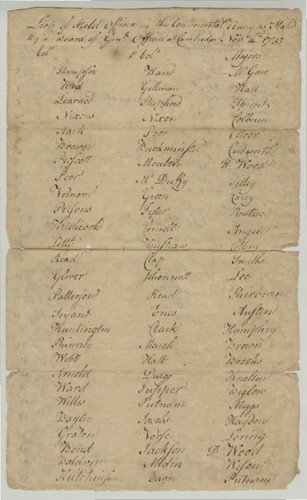 List of Field Officers in the Continental Army as Stated
by a Board of Gen'l Officers at Cambridge Nov. 4th 1775
Col. Lt Col. Majors
Thompson Hand McGaw
Reid Gillman Hall
Learned Shepherd Sprout
Nixons Nixon Colburn
Stark Moor
Brewer Buckminster Cudworth
Prescott Moulton Wood
Poor McDuffy Cilley
Varnum Green Cary
Persons Tyler Prentice
Hitchcock Cornell Angel
Little Henshaw Collins
Read Clap Smiths
Glover Johonnett Lee
Patterson Read Sherburn
Bryant Enos Austin
Huntington Clark Humphry
Phinney March Brown
Webb Hall Brooks
Arnold Durgg Knolton
Ward Tupper Biglow
Willes Putnam Miggs
Bayley Jacobs Haydon
Graton Vose Loring
Bond Jackson Wood
Baldwin Alden Wesson
Hutchinson Putnam